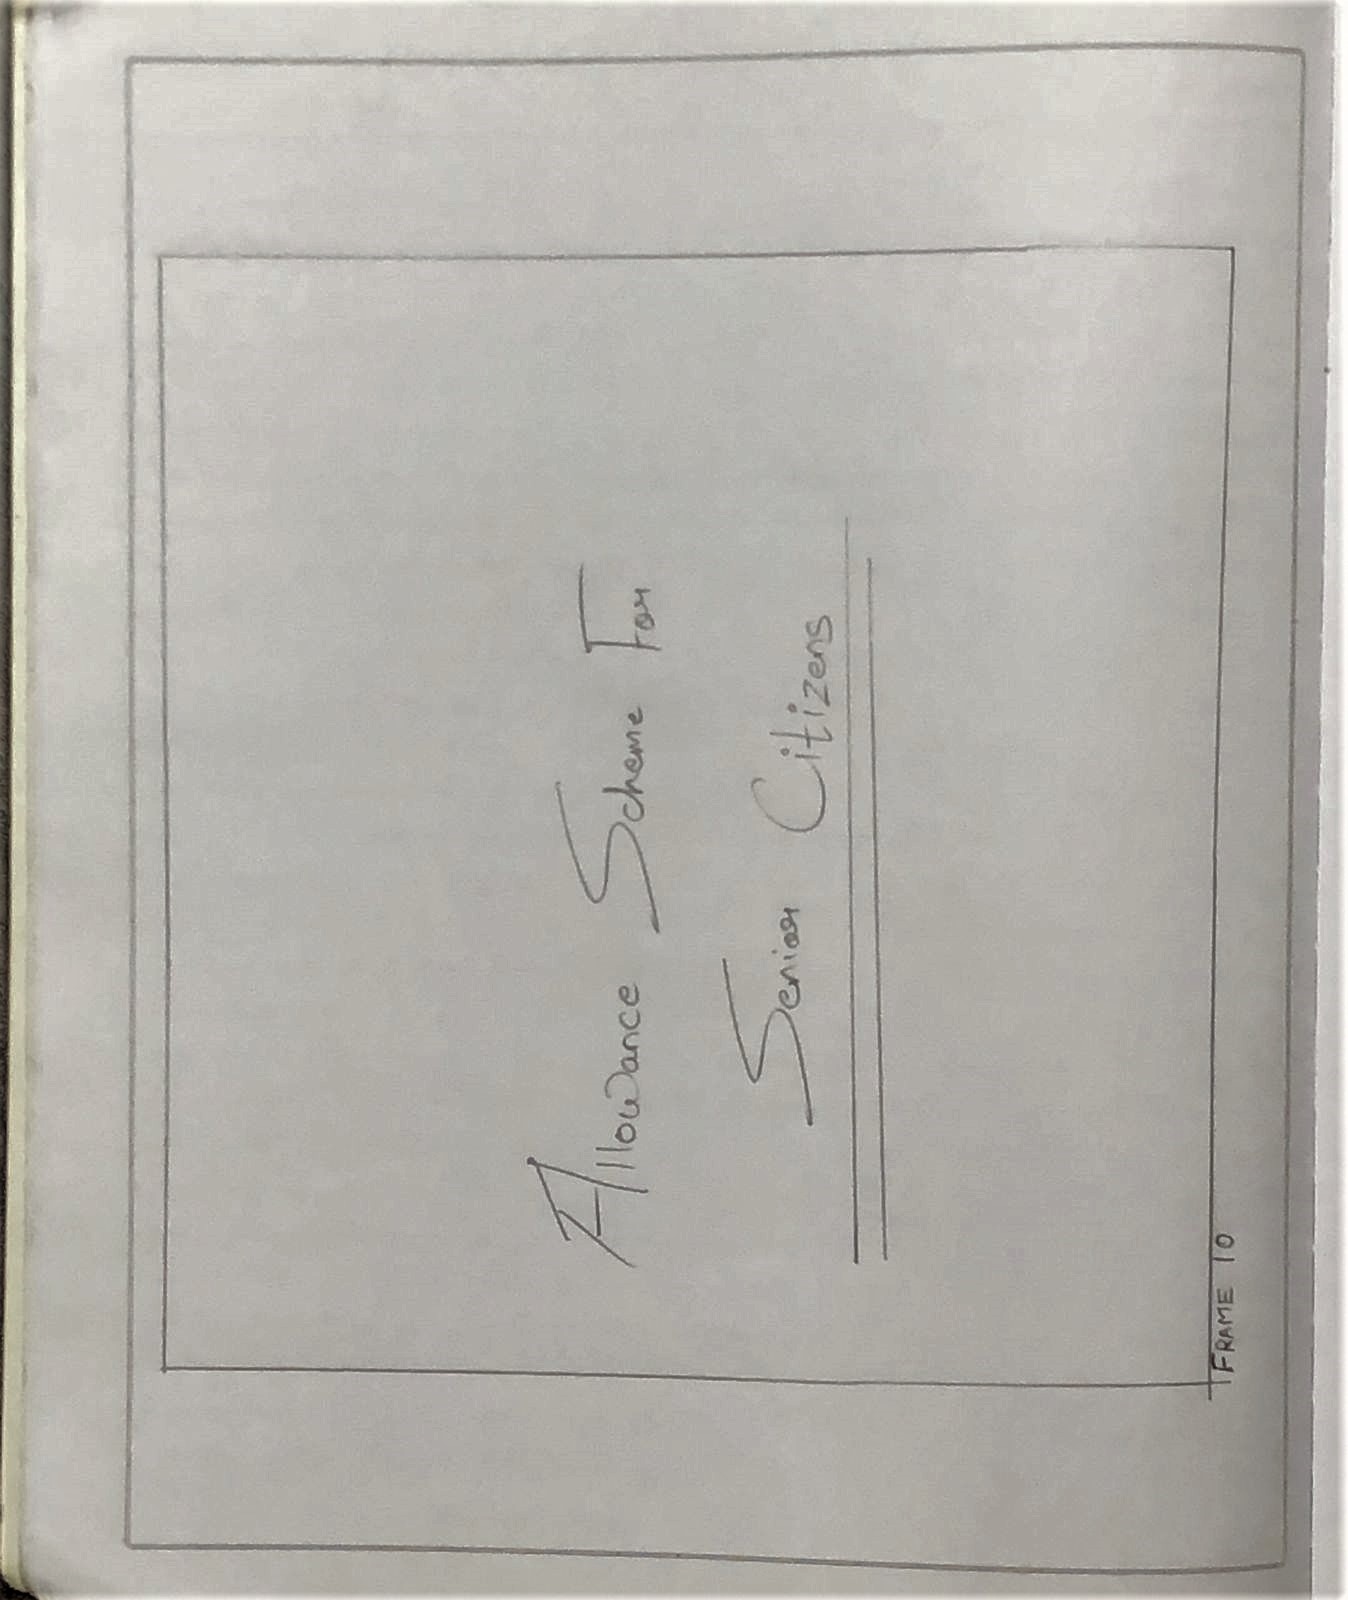 Allowance Scheme For
Senior Citizens
FRAME 10